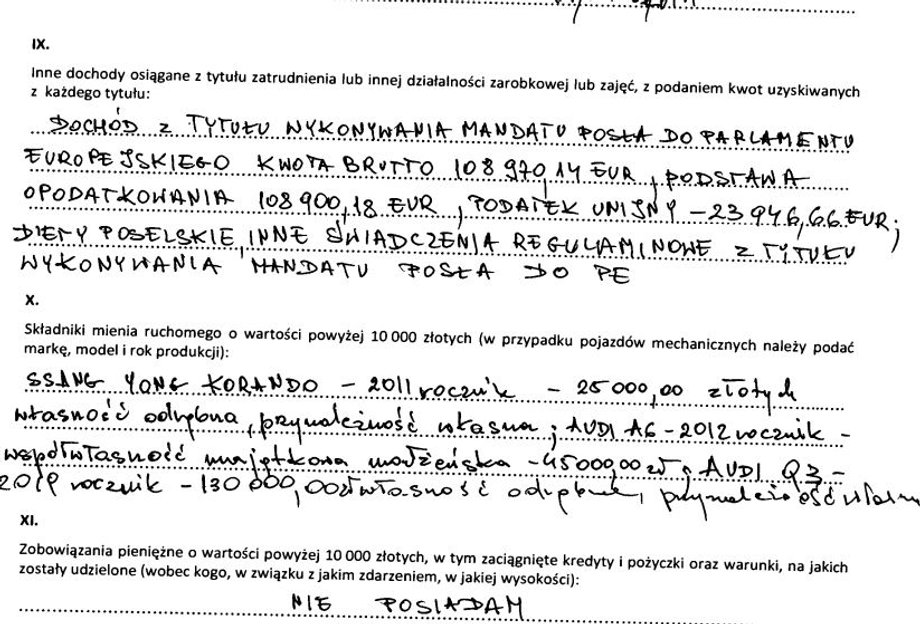 IX.
Inne dochody osiągane z tytułu zatrudnienia lub innej działalności zarobkowej lub zajęć, z podaniem kwot uzyskiwanych
z każdego tytułu:
DOCHÓD Z TYTUŁU WYKONYWANIA MANDATU POSŁA DO PARLAMENTU
EUROPEJSKIEGO KWOTA BRUTTO 108 970,14 EUR, PODSTAWA
OPODATKOWANIA 108 900,18 EUR, PODATEK UNIJNY - 23 946,66 EUR;
DIETY POSELSKIE, INNE ŚWIADCZENIA REGULAMINOWE Z TYTUŁU
WYKONYWANIA MANDATU POSŁA DO PE
X.
Składniki mienia ruchomego o wartości powyżej 10 000 złotych (w przypadku pojazdów mechanicznych należy podać
markę, model i rok produkcji):
SSANG YONG KORANDO - 2011 rocznik - 25 000,00 złotych
własność odrębna, przynależność własna; AUDI A6 - 2012 rocznik -
współwłasność majątkowa małżeńska - 45000,00 zł; AUDI Q3 -
2019 rocznik - 130 000,00 zł własność odrębna, przynależność własna
XI.
Zobowiązania pieniężne o wartości powyżej 10 000 złotych, w tym zaciągnięte kredyty i pożyczki oraz warunki, na jakich
zostały udzielone (wobec kogo, w związku z jakim zdarzeniem, w jakiej wysokości):
NIE POSIADAM